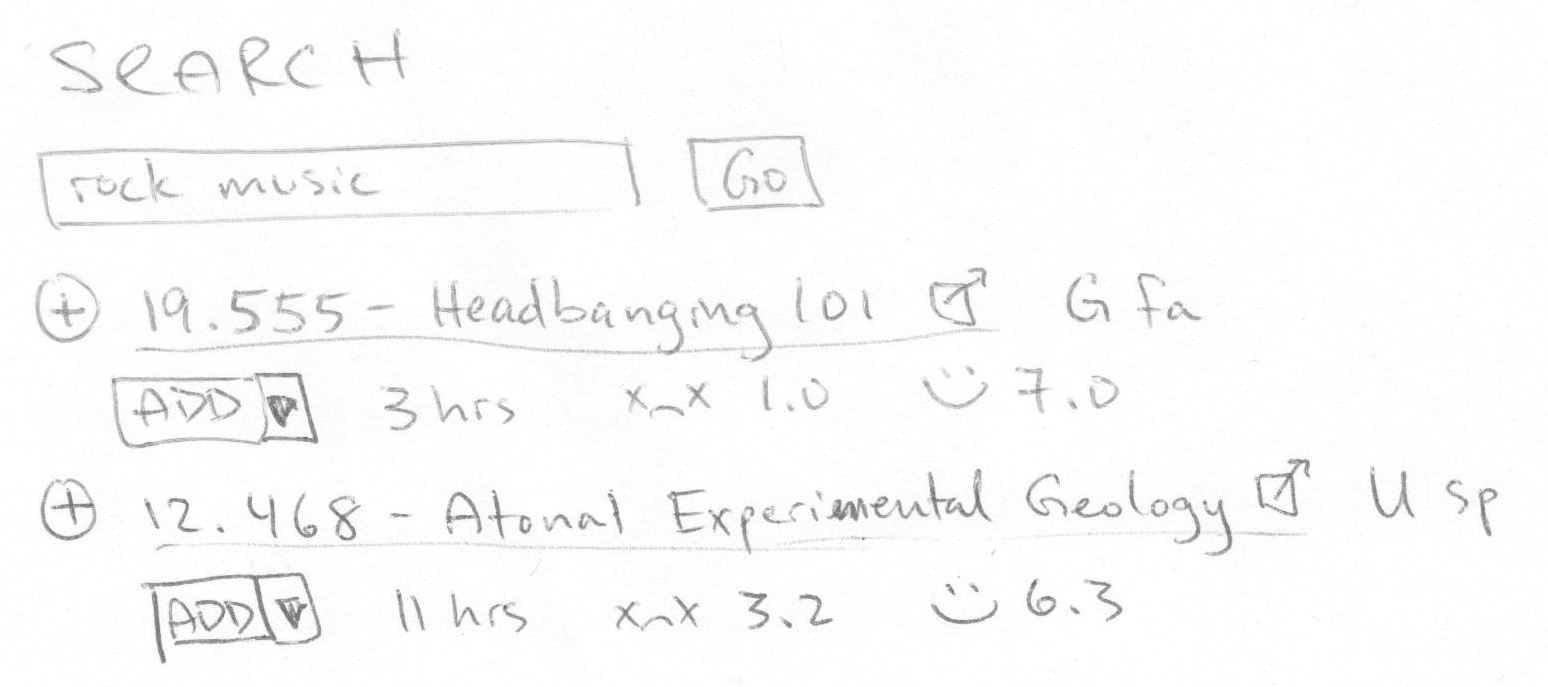 SEARCH
rock music Go
19.555 - Headbanging 101 G fa
ADD 3 hrs x_x 1.0 7.0
12.468 - Atonal Experimental Geology U sp
ADD 11 hrs x_x 3.2 6.3